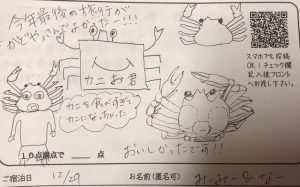 今年最後の旅行が
かどやさんでよかったー!!!
カニお君
カニを食べすぎて
カニになっちゃった
おいしかったです!!
スマホでも投稿
OK!チェック欄
記入後フロント
へ
10点満点で 点
ご宿泊日 12/29
お名前(匿名可)